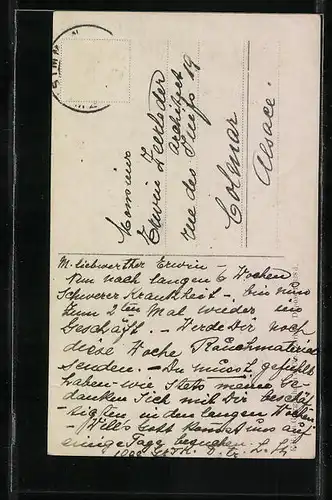 Monsieur
Erwin Zeeleder
Architect
rue des Juifs 19
Colmar
Alsace
M. liebwerther Erwin -
Nun nach langen 6 Wochen
Schwerer Krankheit - bin nun
zum 2ten Mal wieder im
Geschäft. - Werde Dir noch
diese Woche Rauchmaterial
senden. - Du musst gefühlt
haben - wie stets meine Ge-
danken sich mit Dir beschäf-
tigten in den langen Wochen -
Will's Gott kannst uns auf
einige Tage besuchen.